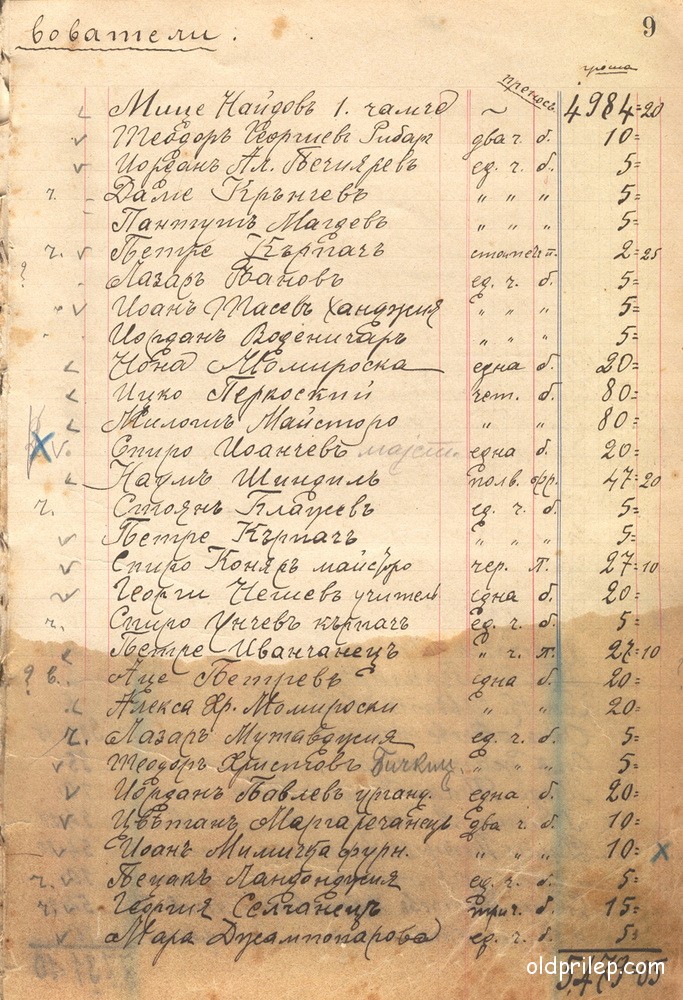 9
вователи.
гроша
преносъ
Мице Найдовъ 1. чамче ~ 4984=20
Теодоръ Георгиевъ Рибар два ч. б. 10=
Иорданъ Ал. Печияревъ ед. ч. б. 5=
ч. Даме Крънчевъ " " " 5=
Пантушъ Магдевъ " " " 5=
ч. Петре Кърпачъ 2=25
? Лазаръ Вановъ ед. ч. б. 5=
Иоанъ Тасевъ Ханджия " " " 5=
Иорданъ Воденичаръ " " " 5=
Нона Момироска една б. 20=
Ицко Перкоский чет. б. 80=
Милошъ Майсторо " " 80=
Х Спиро Иоанчевъ мајст. една б. 20=
Наумъ Шиндилъ полв. фр. 47=20
ч. Стоянъ Плашевъ ед. ч. б. 5=
Петре Кърпачъ " " " 5=
Спиро Коняръ майсторо чер. п. 27=10
Георги Нешевъ учитель една б. 20=
ч. Спиро Унчевъ кърпачъ ед. ч. б. 5=
Петре Иванчанецъ " ч. п. 27=10
? в. Аце Петревъ една б. 20=
Алекса Хр. Момироски " " 20=
ч. Лазаръ Мутавджия ед. ч. б. 5=
Теодоръ Христовъ " " " 5=
Иорданъ Павлевъ урганд. една б. 20=
Цвѣтанъ Маргаречанецъ два ч. б. 10=
Иоанъ Мимичка фурн. " " " 10= х
ч. Пецакъ Ландонджия ед. ч. б. 5=
ч. Георгия Селчанецъ три ч. б. 15=
Мара Джампопарова ед. ч. б. 5=
5473=05
oldprilep.com